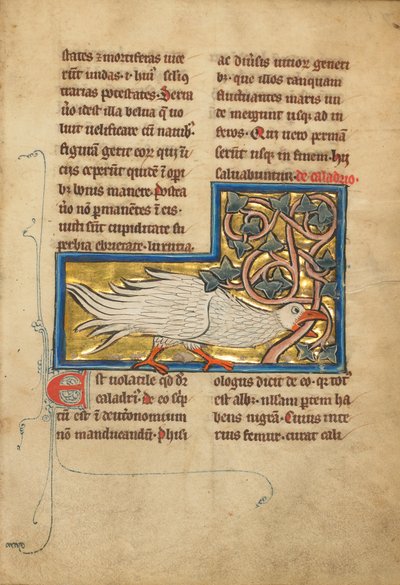 states ⁊ mortiferas uice
rūt undas · i · huiꝰ sclī ꝯ
trarias potestates · Serra
u̾o idest illa belua q̄ uo
luit uelificare cū nauibꝰ
figuram gerit eor̄ qui in
ciis ceperunt quite ī opi
bꝰ bonis manere · Postea
u̾o nō ꝑmanētes ī eis ·
uicti sunt cupiditate su
perbia ebrietate · luxuria ·
ac diuīsis uitior̄ generi
bꝰ · que illos tanquam
fluctuantes maris un
de merguut usqꝫ ad in
feros · Qui uero perman
serunt usqꝫ in finem · hii
saluabuntur · de caladrio ·
Est uolatile qd̄ dr̄
caladriꝰ · De eo scp̄
tū est ī deutronomium
nō manducandū · Phisi
ologus dicit de eo · qꝛ totꝰ
est albꝰ · nllam partem ha
bens nigrā · Cuius inte
rius femur · curat cali